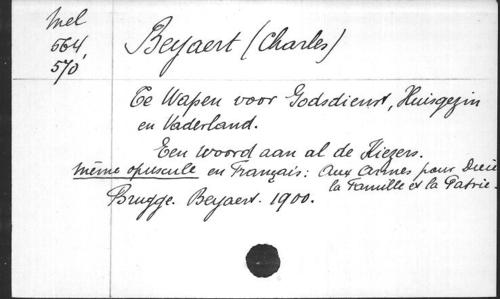 Mel
564,
570
Beyaert (Charles)
Te Wapen voor Godsdienst, Huisgezin
en Vaderland.
Een woord aan al de Kiezers.
même opuscule en Français: Aux Armes pour Dieu
la Famille et la Patrie.
Brugge. Beyaert. 1900.